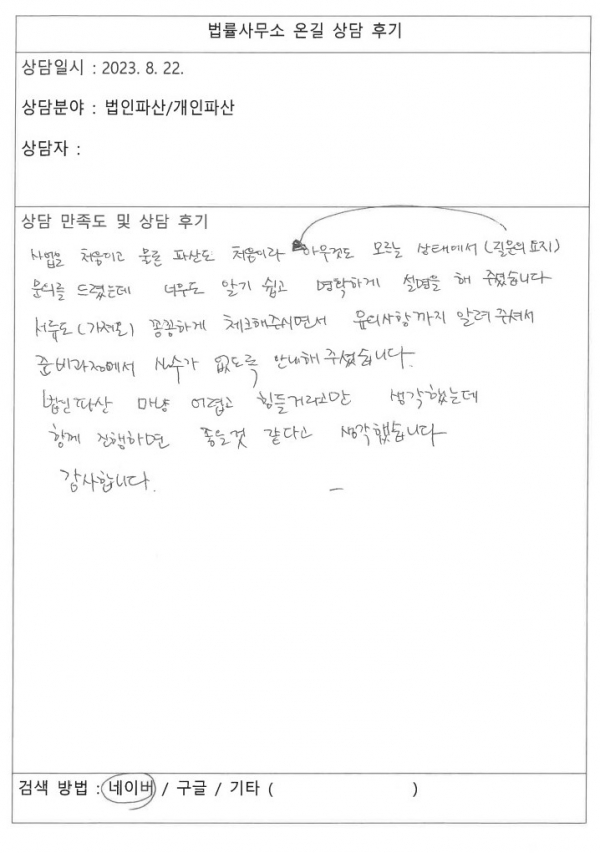 법률사무소 온길 상담 후기
상담일시 : 2023. 8. 22.
상담분야 : 법인파산/개인파산
상담자 :
상담 만족도 및 상담 후기
사업을 처음이고 물론 파산도 처음이라 아무것도 모르는 상태에서 (질문의 요지)
문의를 드렸는데 너무도 알기 쉽고 명확하게 설명을 해 주셨습니다
서류도 (가져온) 꼼꼼하게 체크해주시면서 유의사항까지 알려 주셔서
준비과정에서 실수가 없도록 안내해 주셨습니다.
법인파산 마냥 어렵고 힘들거라고만 생각했는데
함께 진행하면 좋을것 같다고 생각했습니다
감사합니다.
검색 방법 : 네이버 / 구글 / 기타 ( )